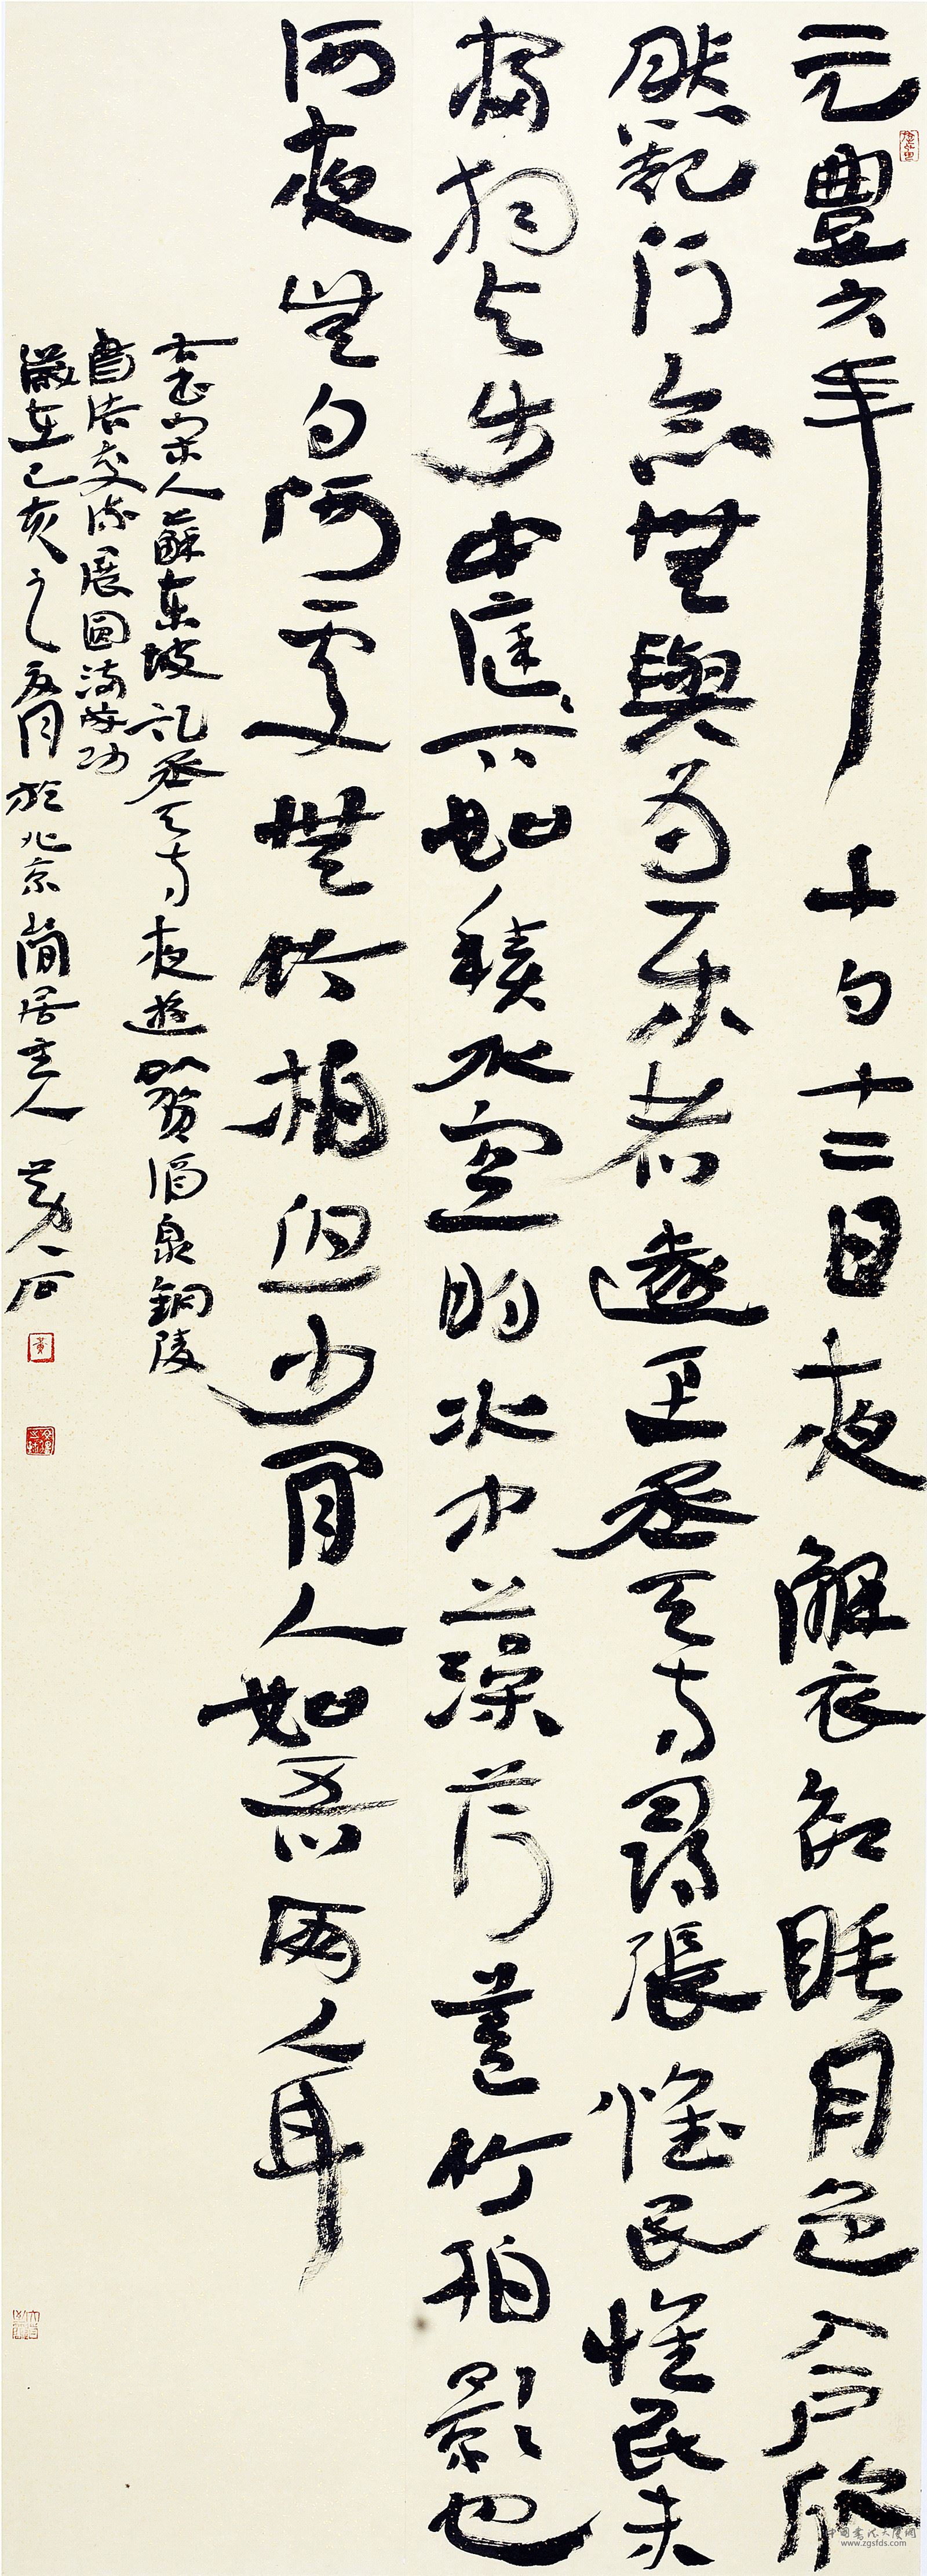 元豐六年十月十二日夜解衣欲睡月色入户欣
然起行念無與為樂者遂至承天寺尋張懷民懷民未
寢相与步中庭庭下如積水空明水中藻荇蓋竹柏影也
何夜無月何處無竹柏但少閒人如吾兩人耳
右書宋人蘇東坡記承天寺夜遊賀酒泉銅陵
書法交流展圓滿成功
歲在己亥之夏月於北京簡居主人
www.zgsfds.com